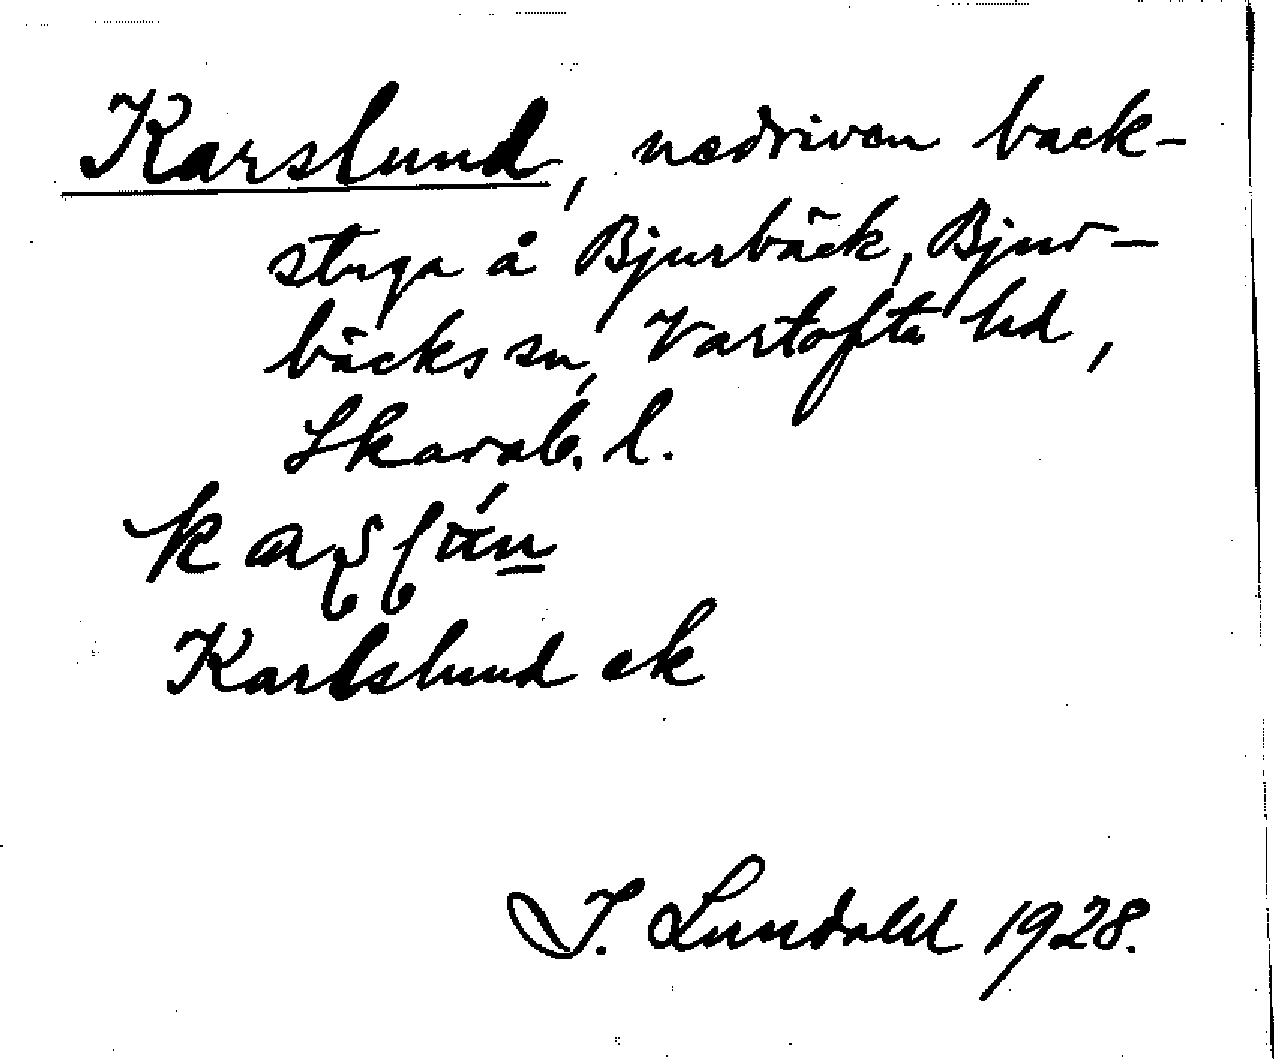 Karslund, nedriven back-
stuga å Bjurbäck, Bjur-
bäcks sn, Vartofta hd,
Skarab. l.
Karlslund ek
I. Lundahl 1928.